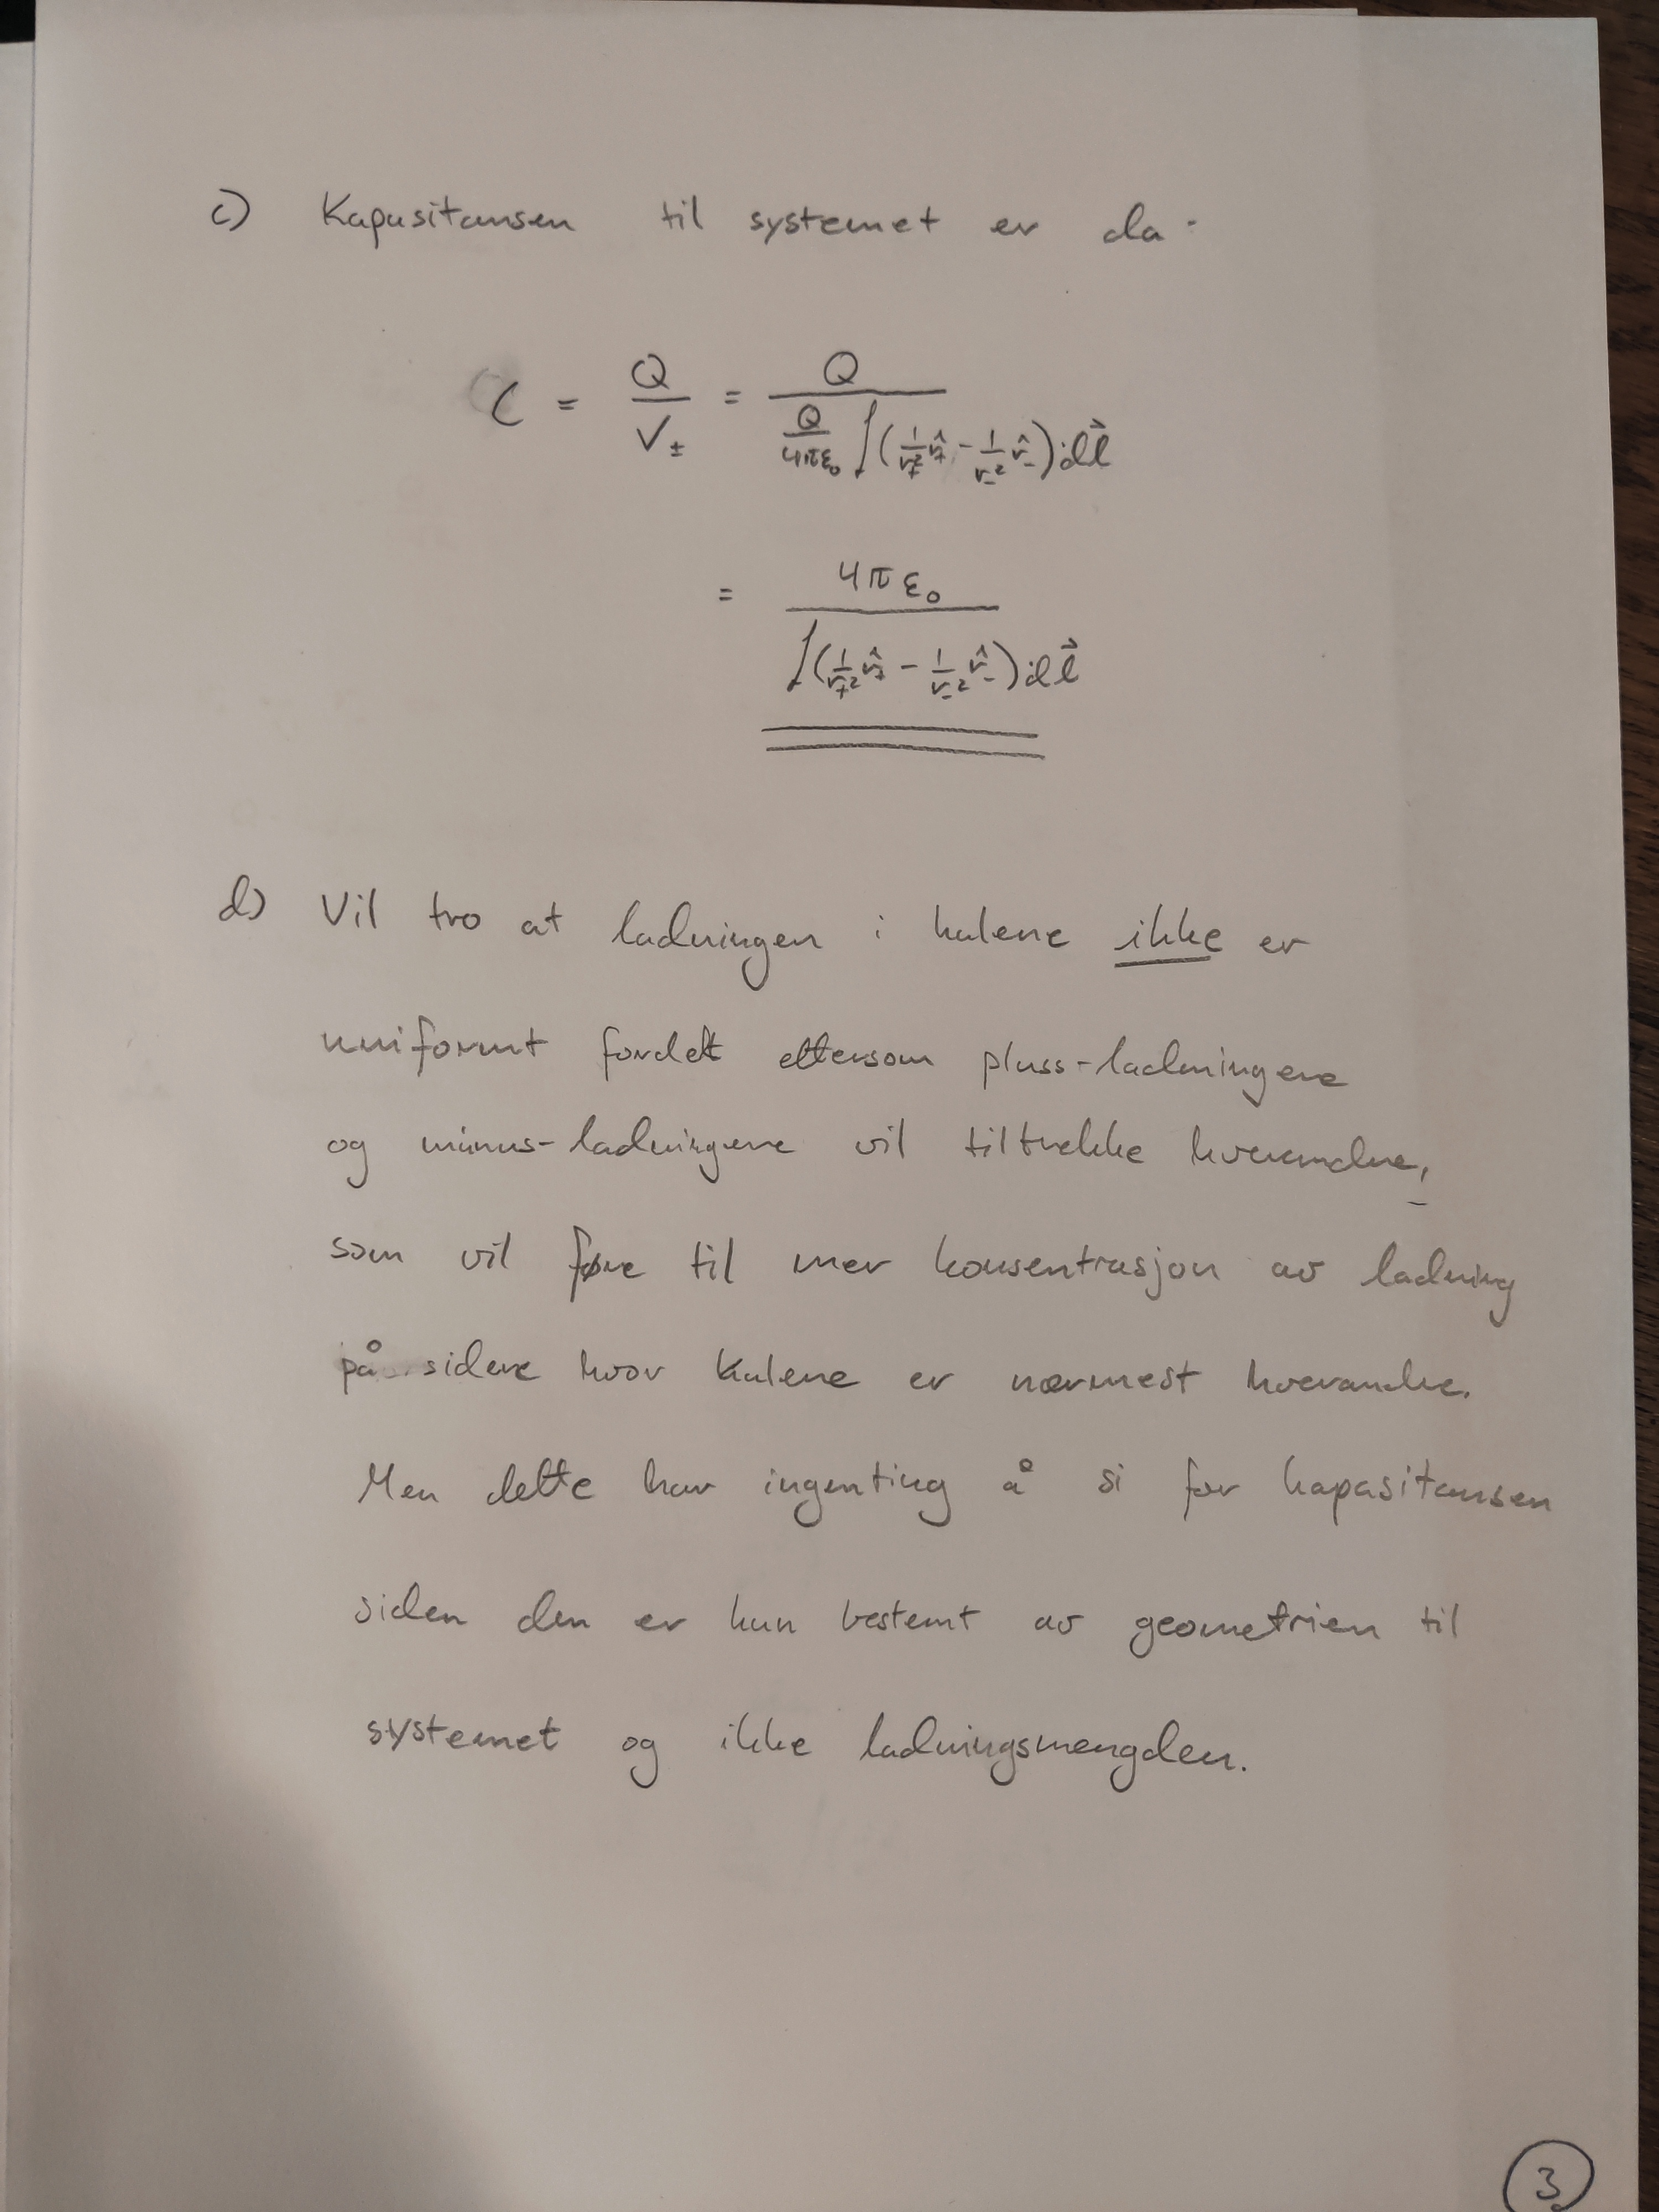 c) Kapasitansen til systemet er da:
C = Q / V± = Q / (Q/4πε₀ ∫(1/r₊² r̂₊ - 1/r₋² r̂₋) · dl⃗)
= 4πε₀ / ∫(1/r₊² r̂₊ - 1/r₋² r̂₋) · dl⃗
d) Vil tro at ladningen i kulene ikke er
uniformt fordelt ettersom pluss-ladningene
og minus-ladningene vil tiltrekke hverandre,
som vil føre til mer konsentrasjon av ladning
på sidene hvor kulene er nærmest hverandre.
Men dette har ingenting å si for kapasitansen
siden den er kun bestemt av geometrien til
systemet og ikke ladningsmengden.
3